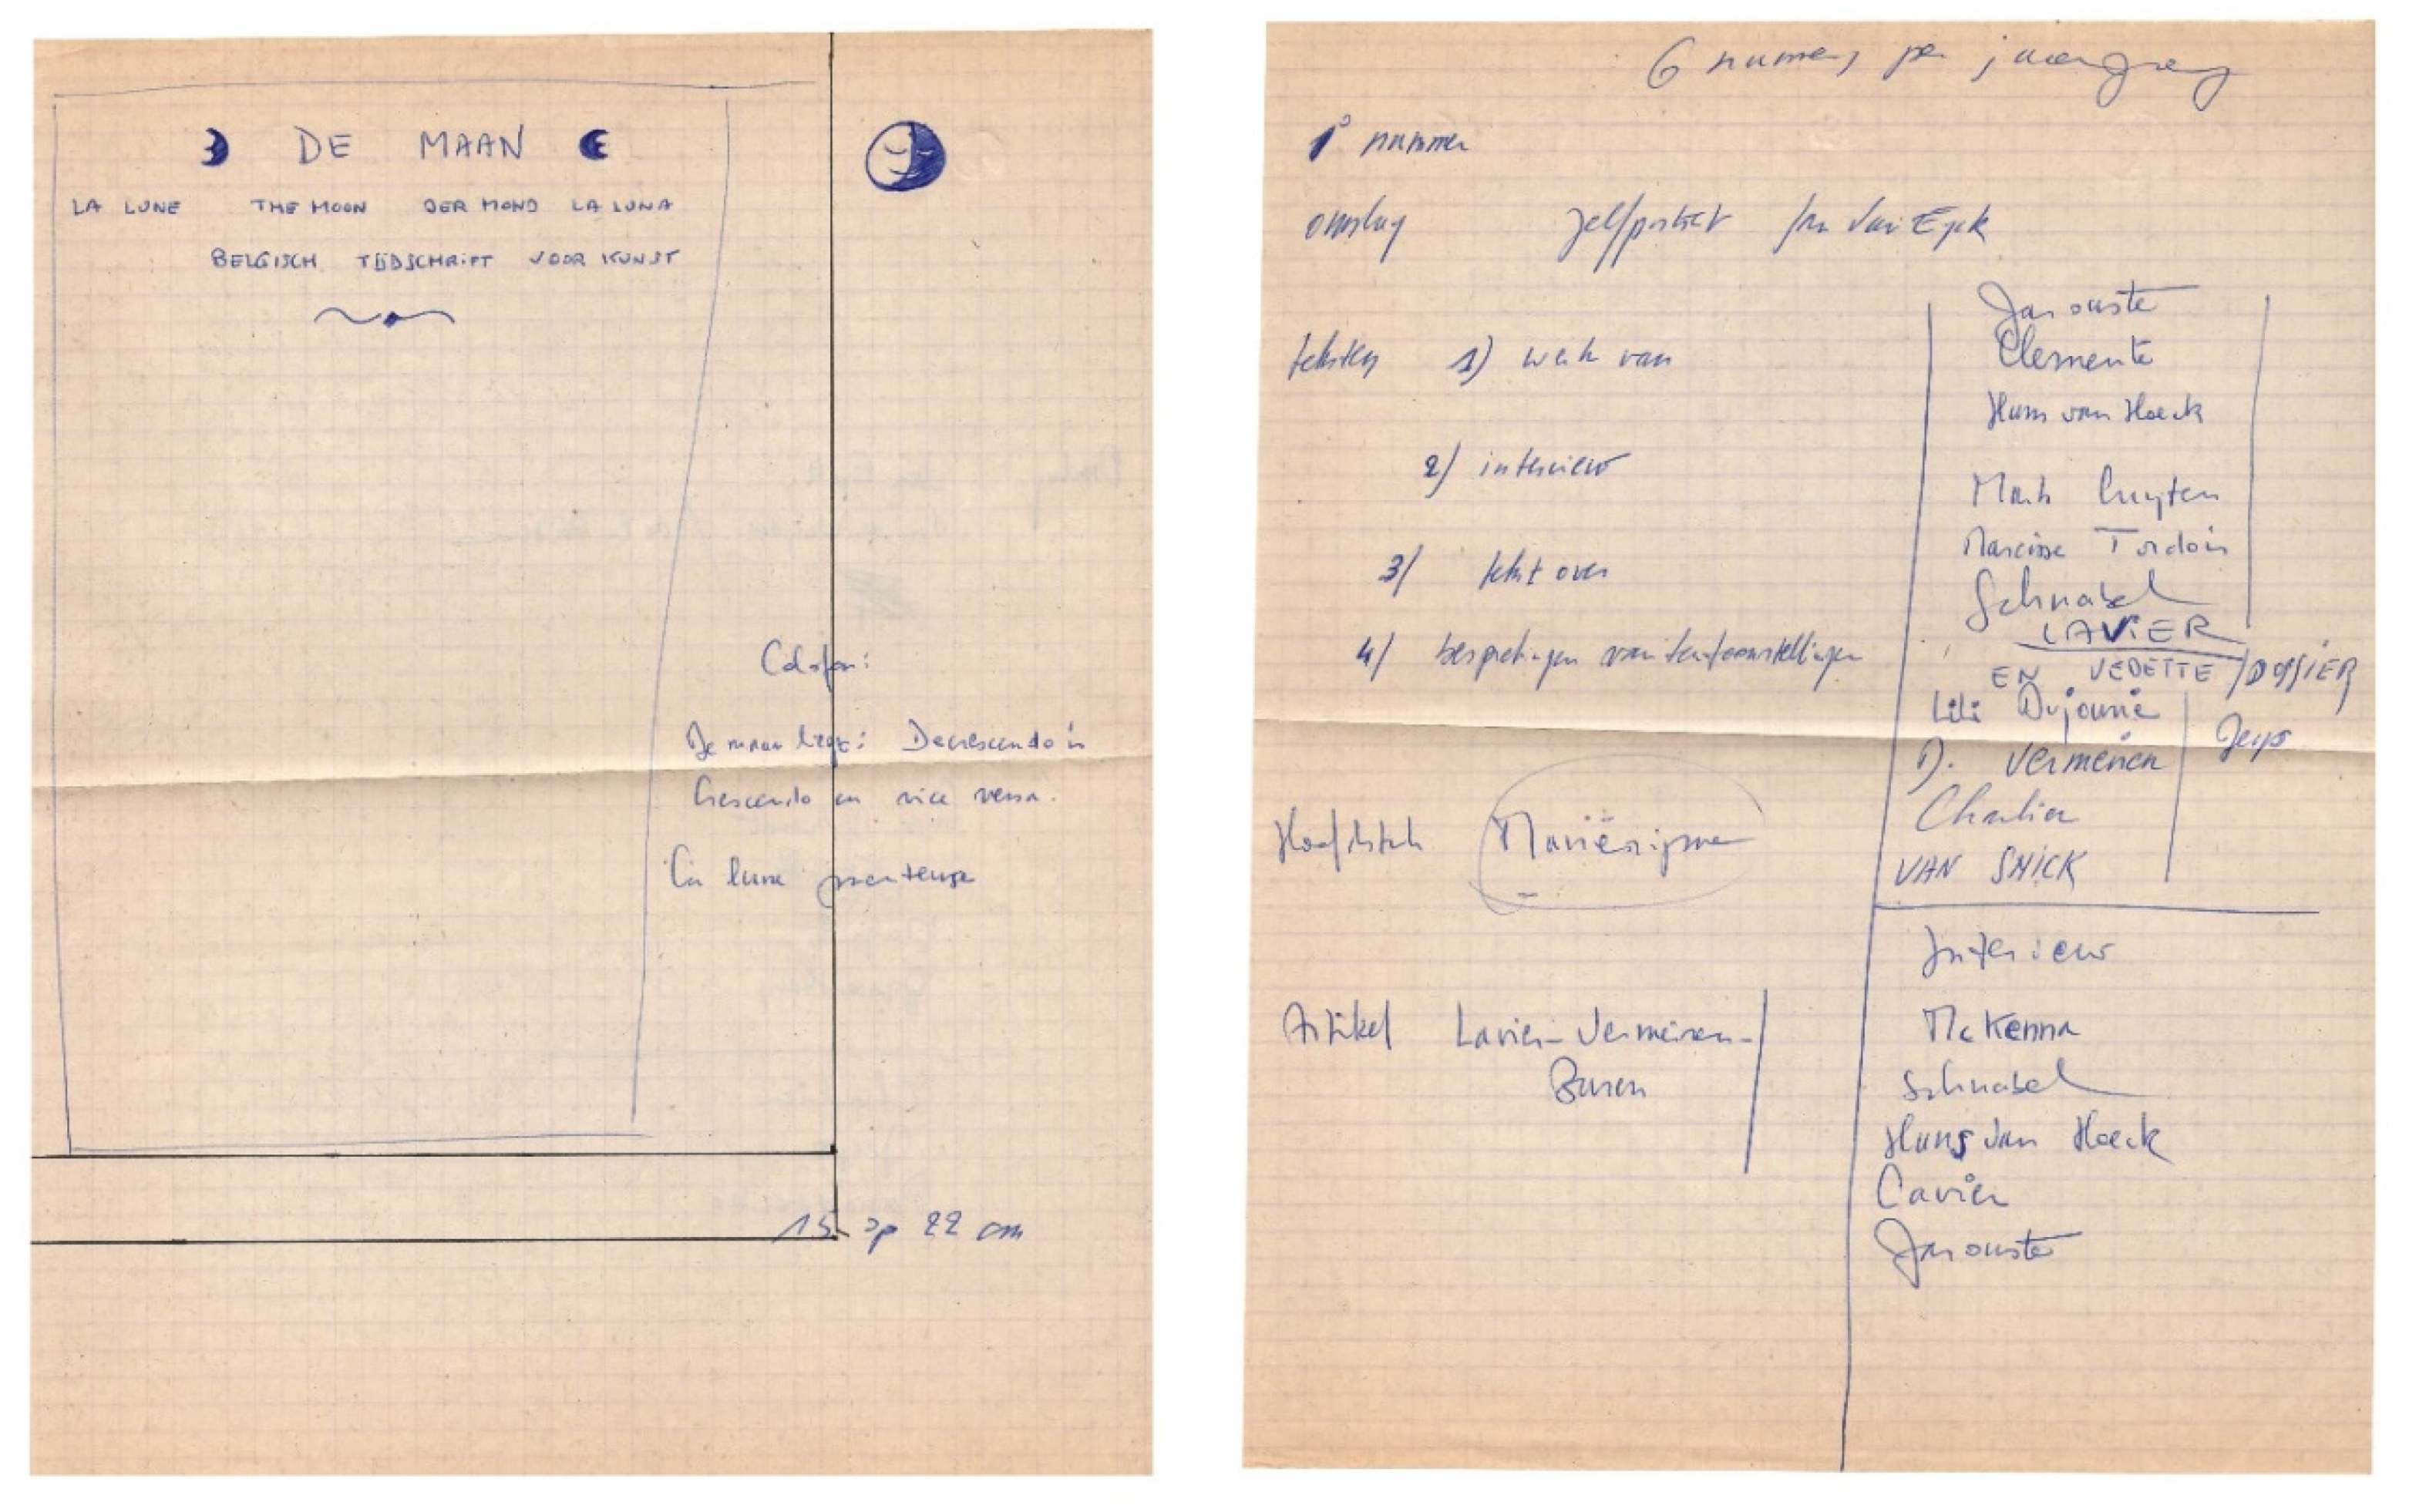 DE MAAN
LA LUNE THE MOON DER MOND LA LUNA
BELGISCH TIJDSCHRIFT VOOR KUNST
Colofon:
De maan liegt: Decrescendo is
Crescendo en vice versa.
La lune menteuse
15 op 22 cm
6 numers per jaargang
1° nummer
omslag zelfportret Jan Van Eyck
teksten 1) werk van
2) interview
3) tekst over
4) besprekingen van tentoonstellingen
Garouste
Clemente
Hans van Hoeck
Mark Luyten
Narcisse Tordoir
Schnabel
LAVIER
EN VEDETTE / DOSSIER
Lili Dujourie
D. Vermeiren
Charlier
VAN SNICK
Geys
Hoofdstuk Maniërisme
Artikel Lavier - Vermeiren -
Buren
Interview
McKenna
Schnabel
Hans Van Hoeck
Lavier
Garouste